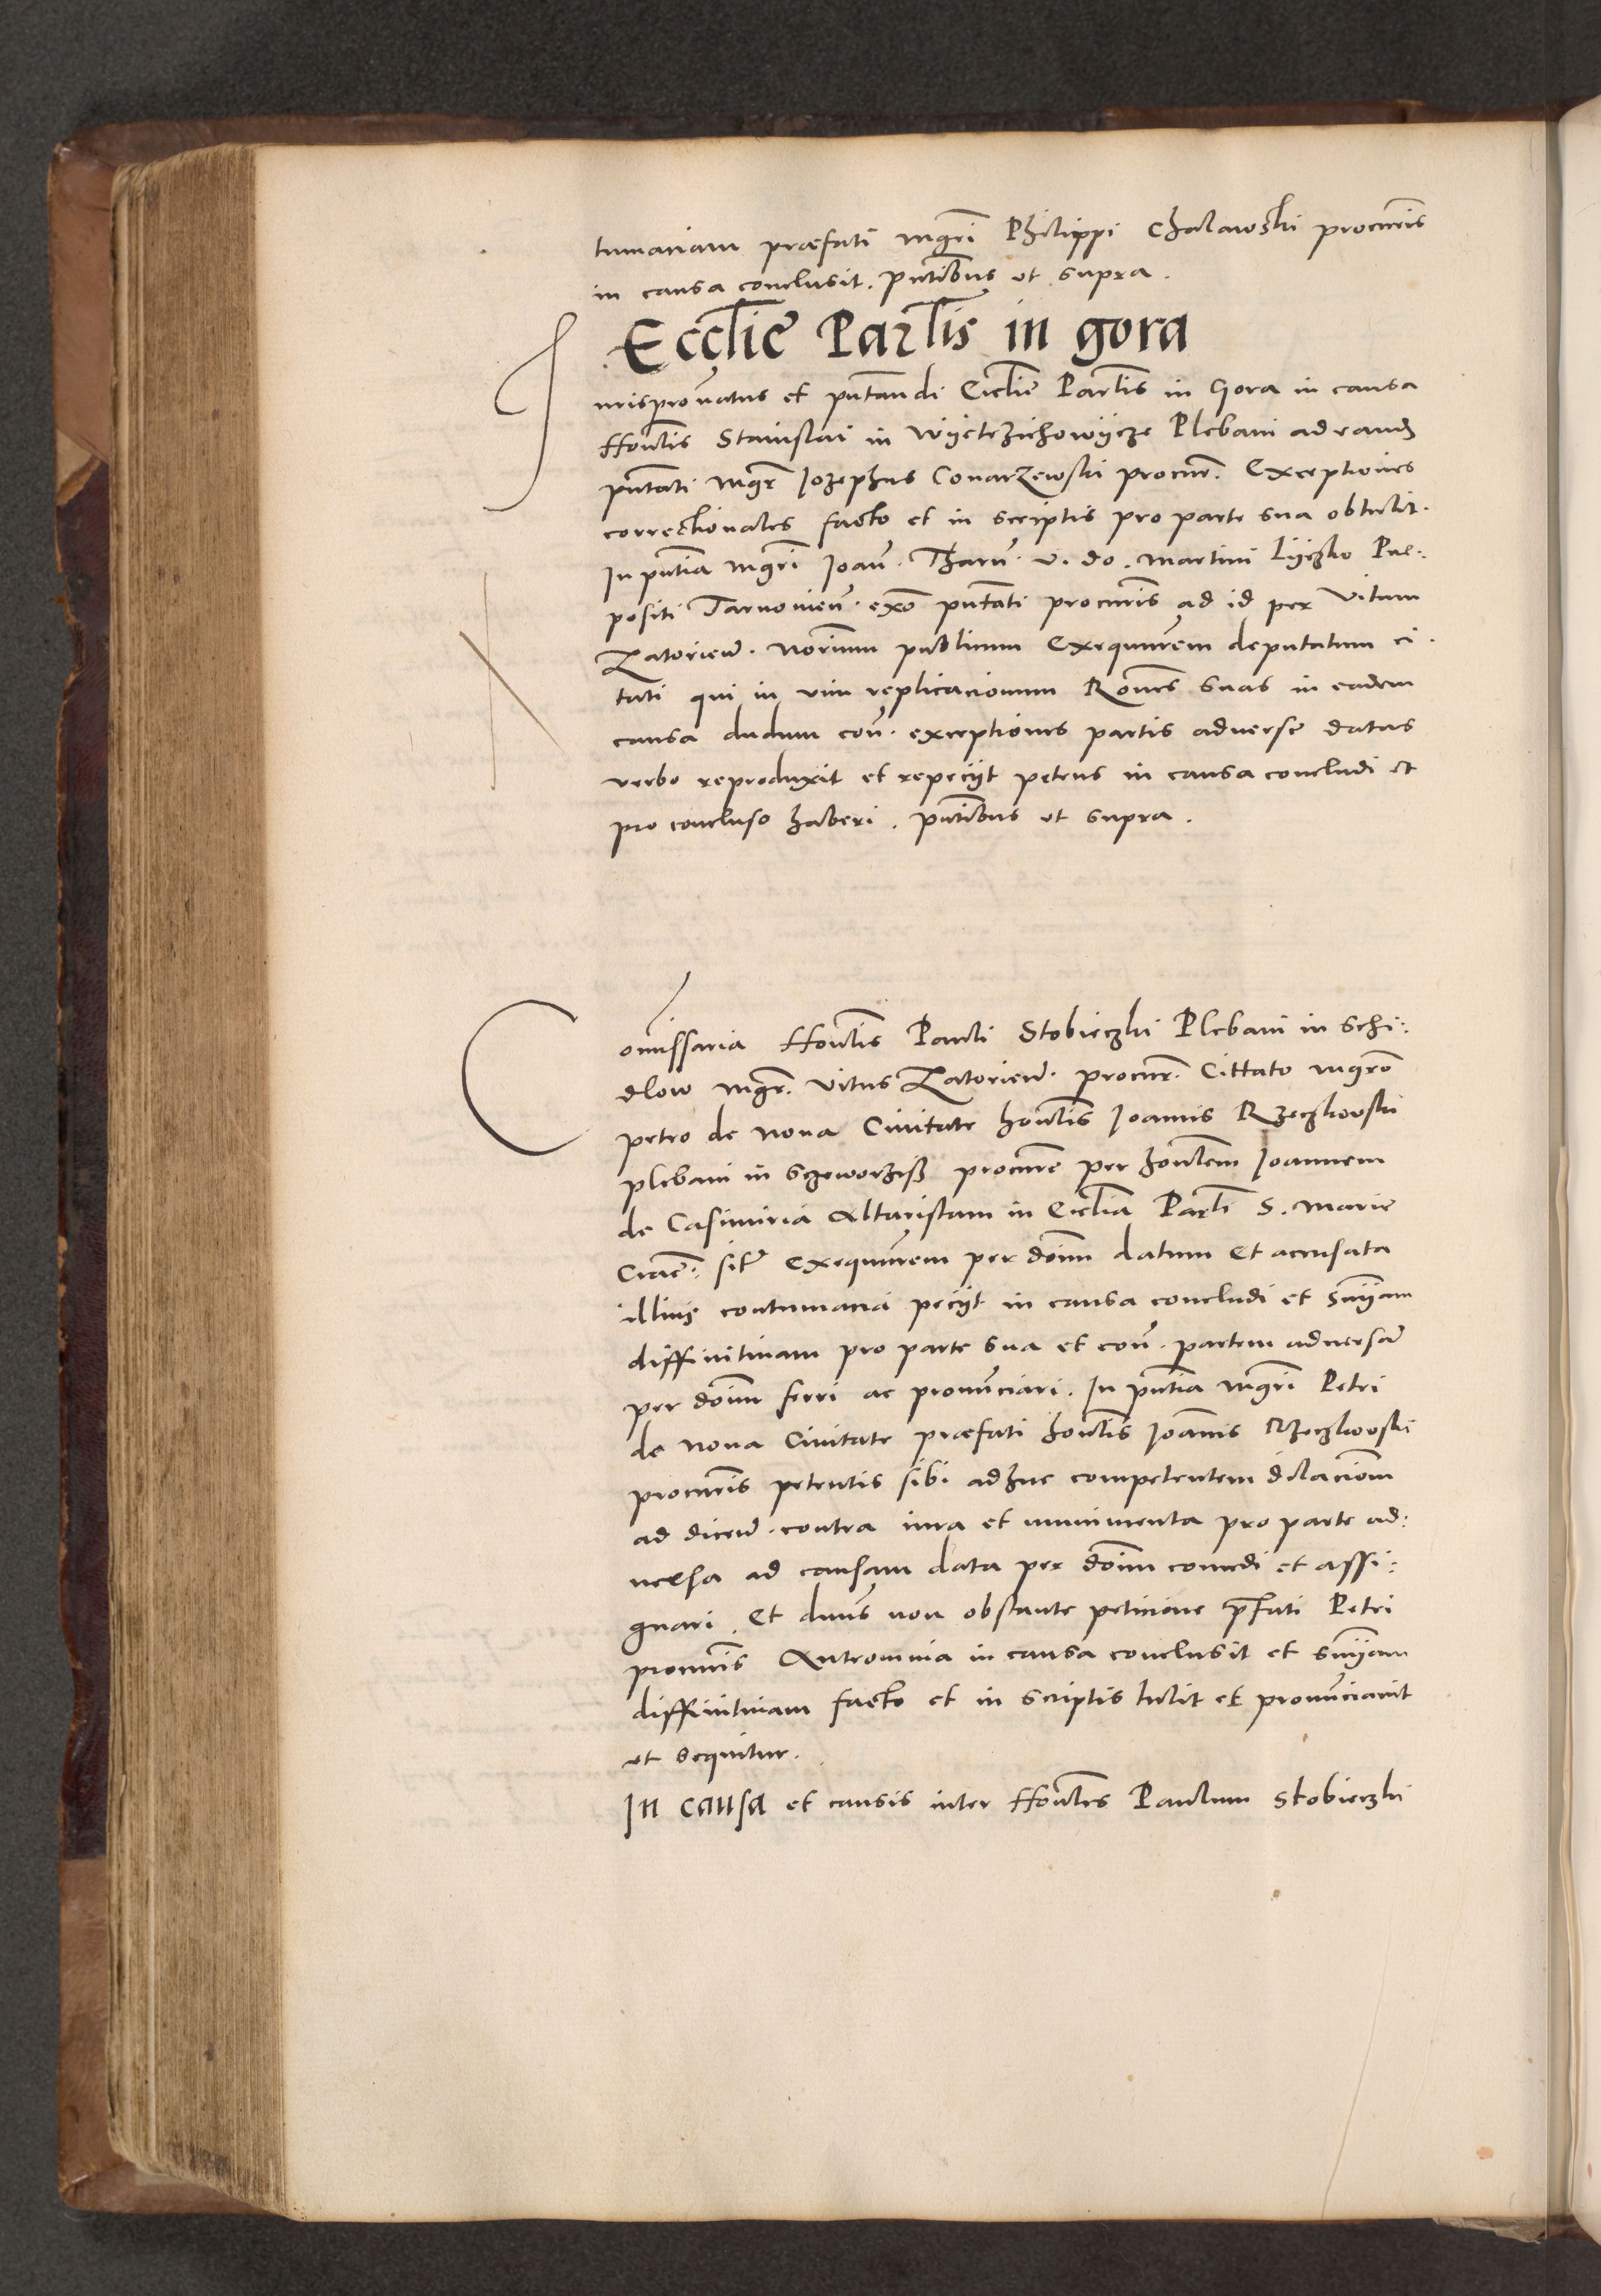 tumaciam præfati mgri Philippi Chalawski procuris
in causa conclusit. Pntibus ut supra.
Ecclie Parlis in gora
Jurispronatus et pntandi Ecclie Parlis in Gora in causa
Honlis Stanislai in Wijetrzichowijcze Plebani ad eand
pntati mgr Iozephus Conarzewski procur. Exceptiones
correctionales facto et in scriptis pro parte sua obtulit.
In pntia mgri Ioan. Tharn. v. do. Martini Lijczko Præ:
positi Tarnovien. exo pntati procuris ad id per Vitum
Zatorien. Norium publicum Exequurem deputatum ci.
tati qui in vim replicacionum Rones suas in eadem
causa dudum con. exceptiones partis adverse datas
verbo reproduxit et repeciit petens in causa concludi et
pro concluso haberi. Pntibus ut supra.
Comissaria Honlis Pauli Stobieczki Plebani in Schi:
dlow mgr. Vitus Zatorien. procur. Cittato mgro
Petro de Nova Civitate honlis Ioannis Rzeczkowski
plebani in Sczeworziss procure per honlem Ioannem
de Casimiria Altaristam in Ecclia Parli S. Marie
Craco: sitr Exequurem per donu datum Et accusata
illius contumacia peciit in causa concludi et sniam
diffinitivam pro parte sua et con. partem adversa
per donu ferri ac pronunciari. In pntia mgri Petri
de Nova Civitate præfati honlis Ioannis Rzeczkowski
procuris petentis sibi adhuc competentem dilacionem
ad dicen. contra iura et munimenta pro parte ad:
versa ad causam data per donu concedi et assi:
gnari. Et dnus non obstante peticione pfati Petri
procuris Antromnia in causa conclusit et sniam
diffinitivam facto et in scriptis tulit et pronunciavit
ut sequitur.
In causa et causis inter Honles Paulum Stobieczki